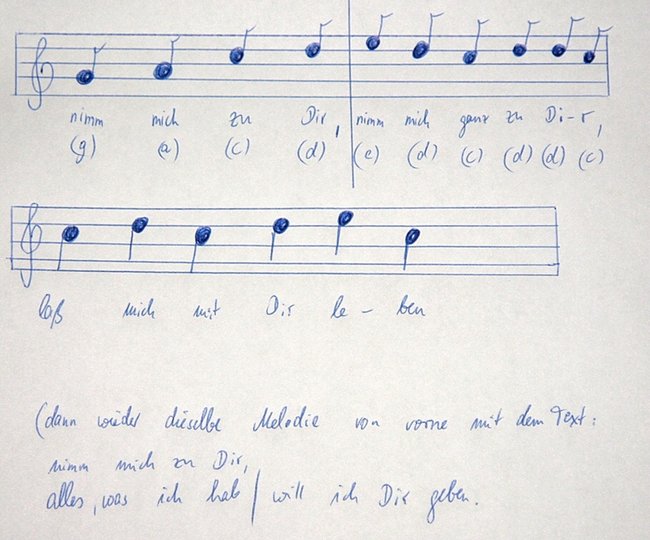 nimm mich zu Dir, nimm mich ganz zu Di-r,
(g) (a) (c) (d) (e) (d) (c) (d) (d) (c)
laß mich mit Dir le - ben
(dann wieder dieselbe Melodie von vorne mit dem Text:
nimm mich zu Dir,
alles, was ich hab | will ich Dir geben.